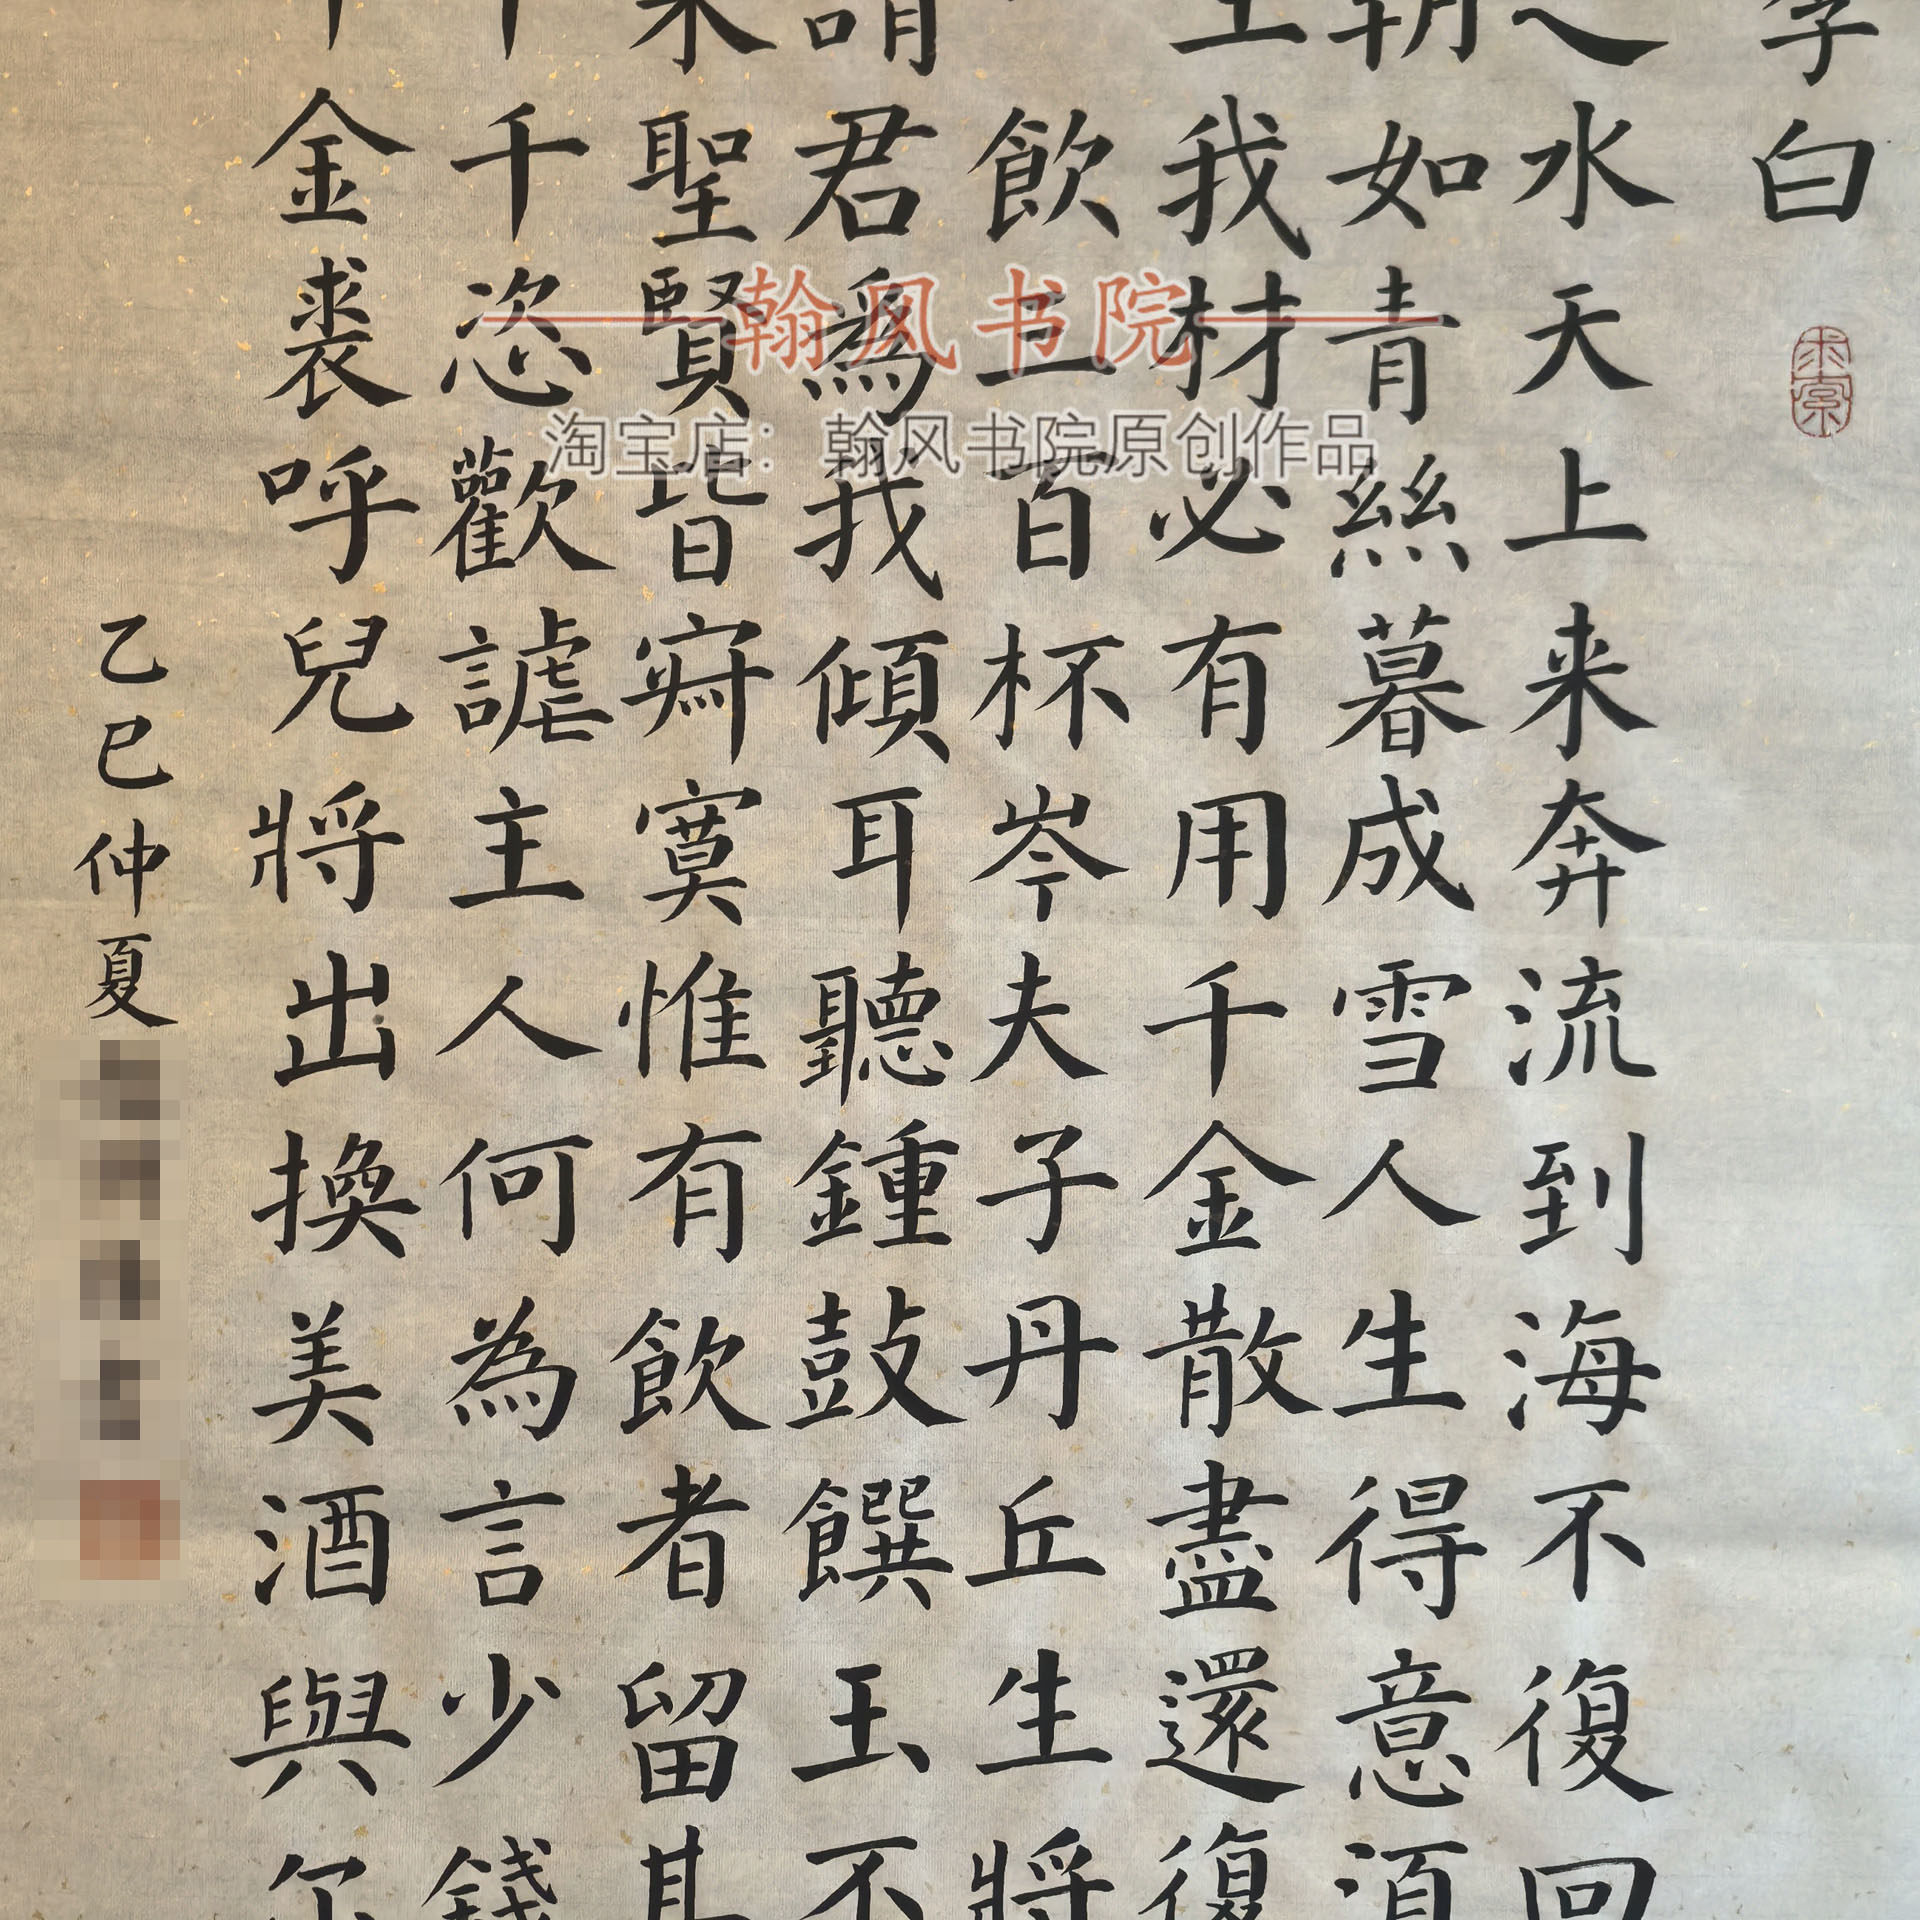 李白
之水天上来奔流到海不復回
朝如青絲暮成雪人生得意須
生我材必有用千金散盡還復
飲三百杯岑夫子丹丘生將
請君爲我傾耳聽鍾鼓饌玉不
来聖賢皆寂寞惟有飲者留其
十千恣歡謔主人何為言少錢
千金裘呼兒將出換美酒與尔
乙巳仲夏
翰风书院
淘宝店：翰风书院原创作品